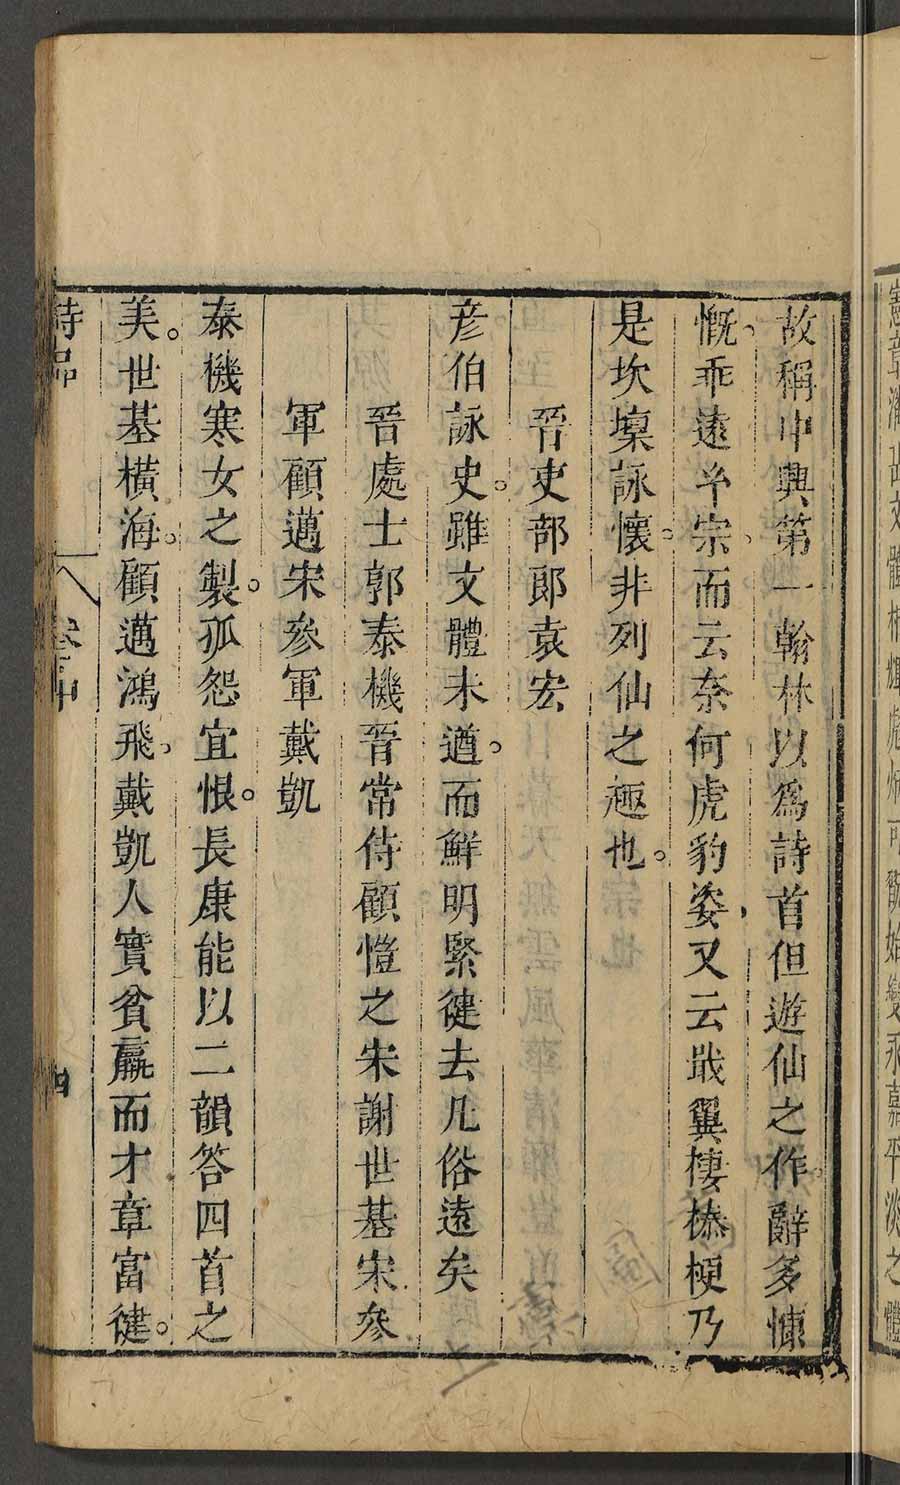 憲章潘岳文體相輝彪炳可翫始變永嘉平淡之體
故稱中興第一翰林以爲詩首但遊仙之作辭多慷
慨乖遠𤣥宗而云奈何虎豹姿又云戢翼棲榛梗乃
是坎壈詠懷非列仙之趣也
晉吏部郎袁宏
彦伯詠史雖文體未遒而鮮明緊健去凡俗遠矣
晉處士郭泰機晉常侍顧愷之宋謝世基宋參
軍顧邁宋參軍戴凱
泰機寒女之製孤怨宜恨長康能以二韻答四首之
美世基橫海顧邁鴻飛戴凱人實貧羸而才章富健
詩品 卷中 四